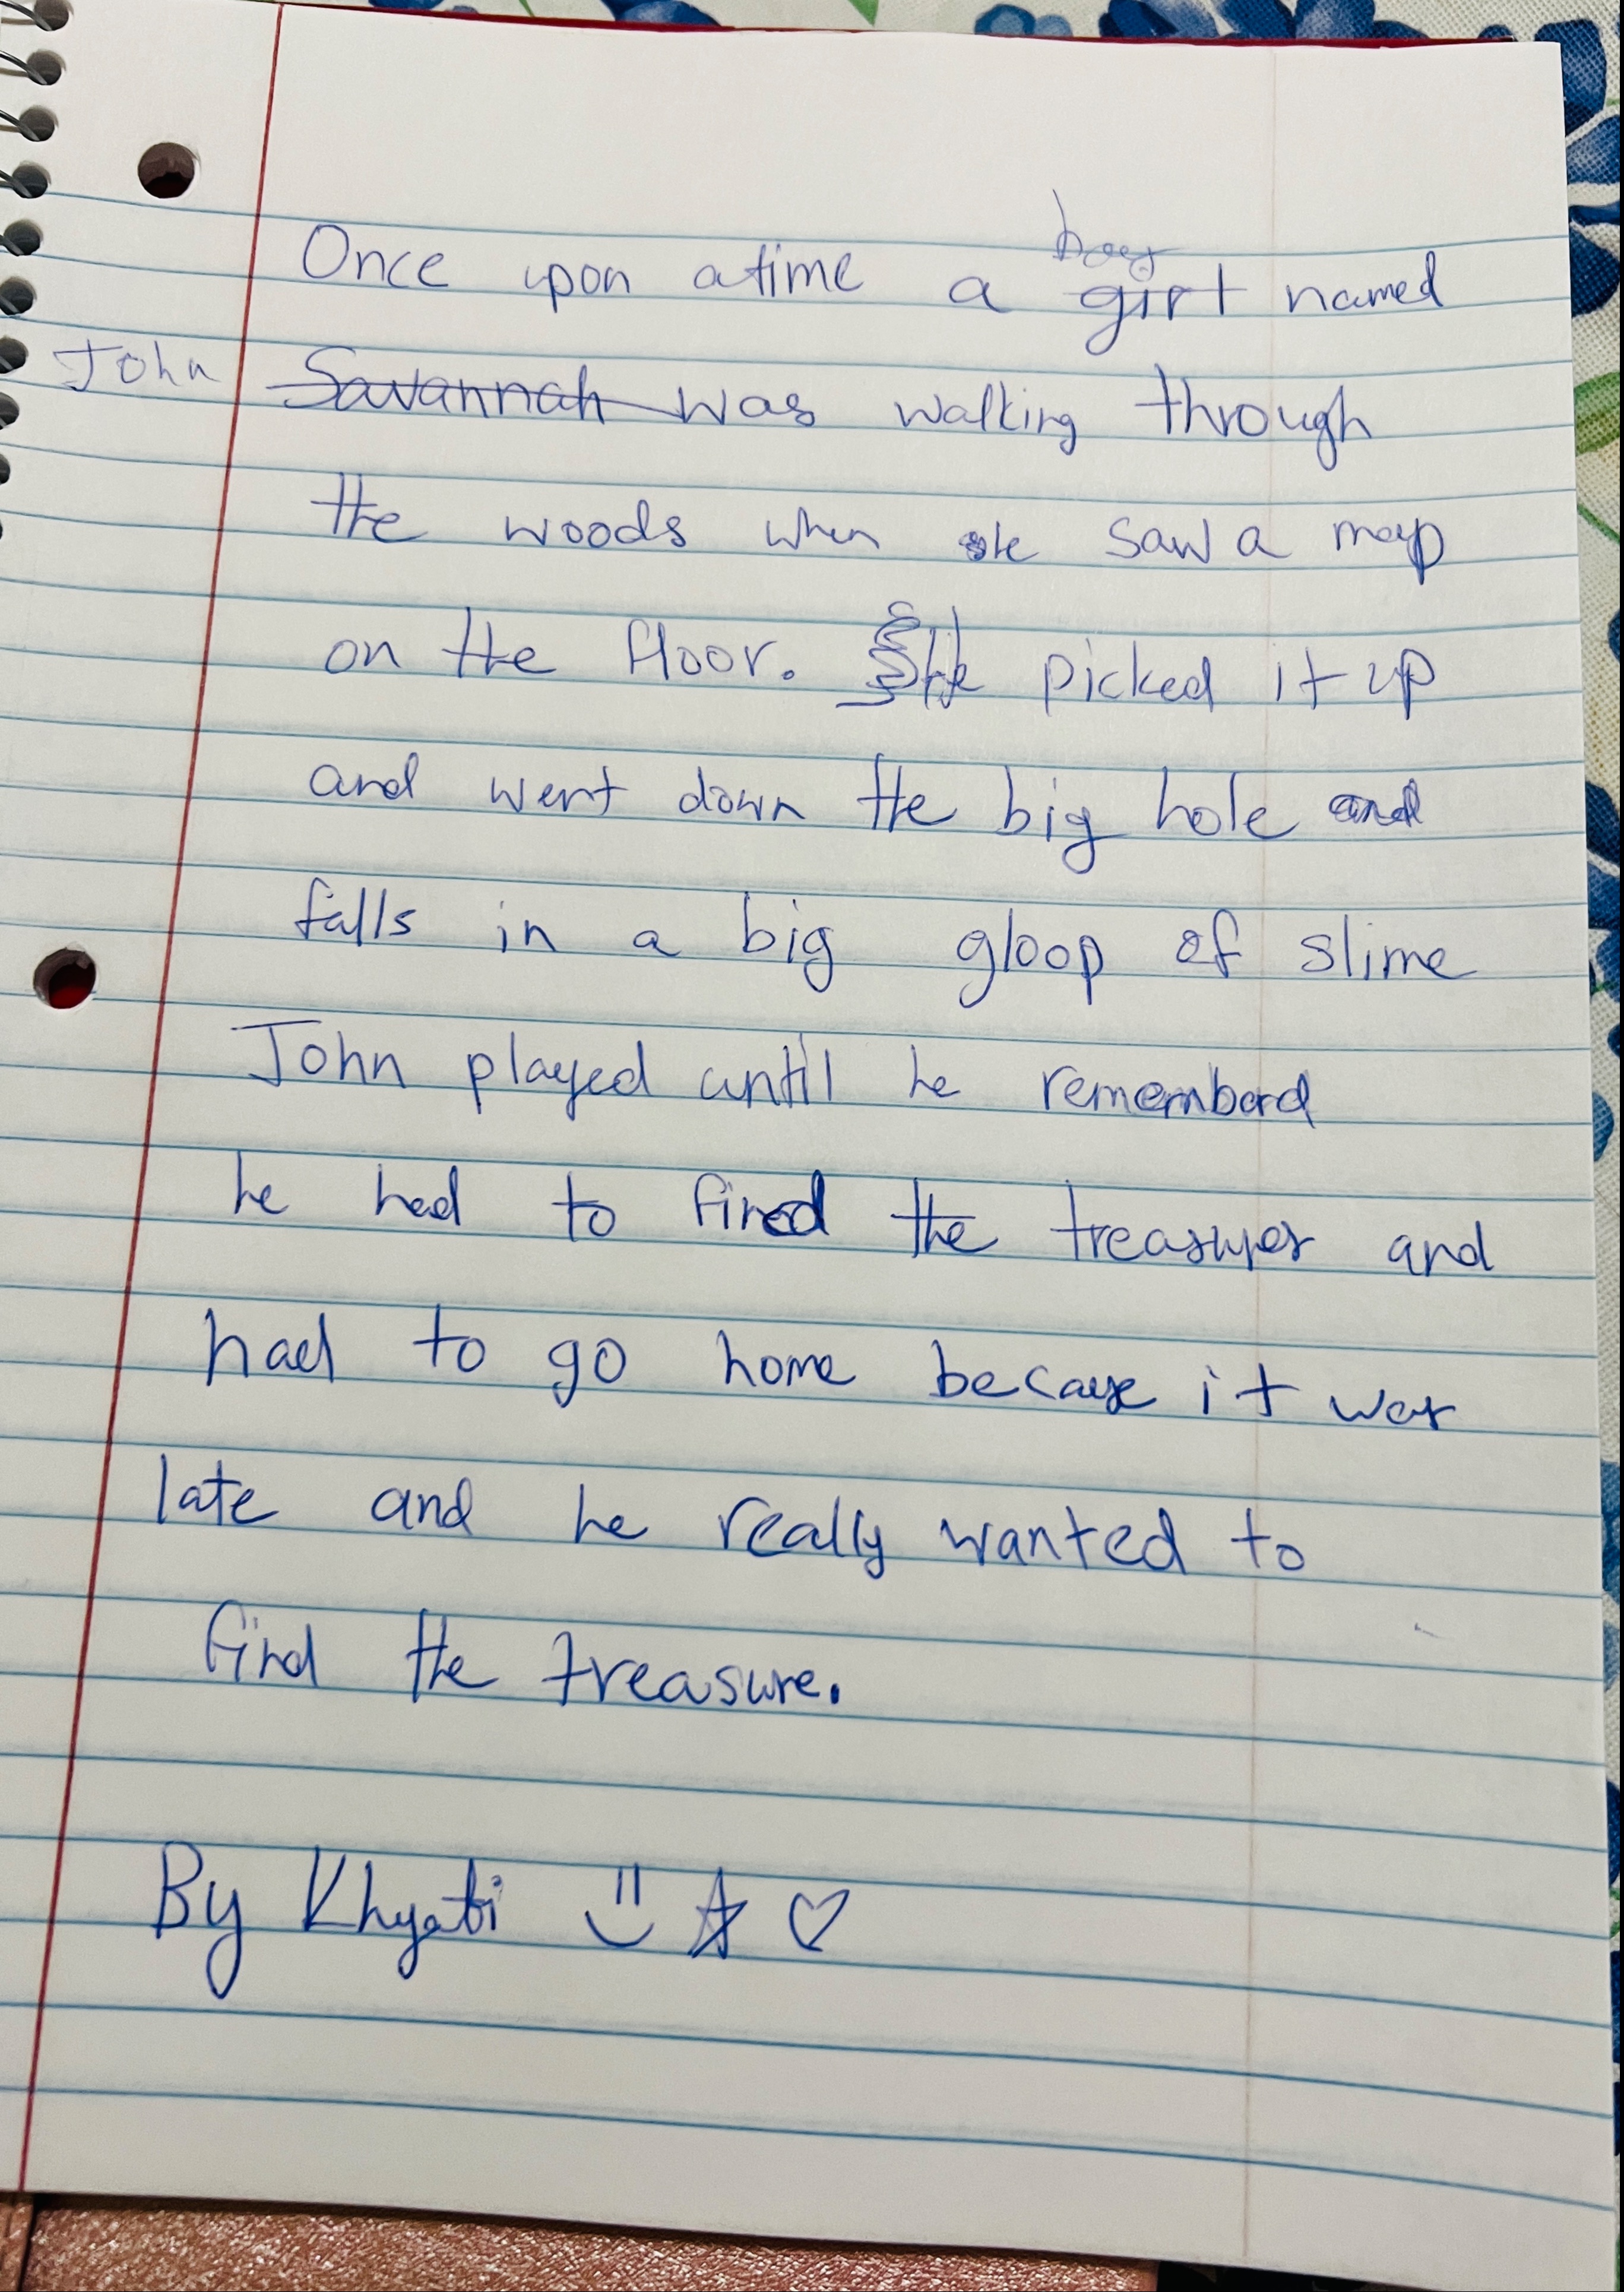 Once upon a time a boy named
John was walking through
the woods when he saw a map
on the floor. He picked it up
and went down the big hole and
falls in a big gloop of slime
John played until he rememberd
he had to find the treasures and
had to go home because it was
late and he really wanted to
find the treasure.
By Khyati